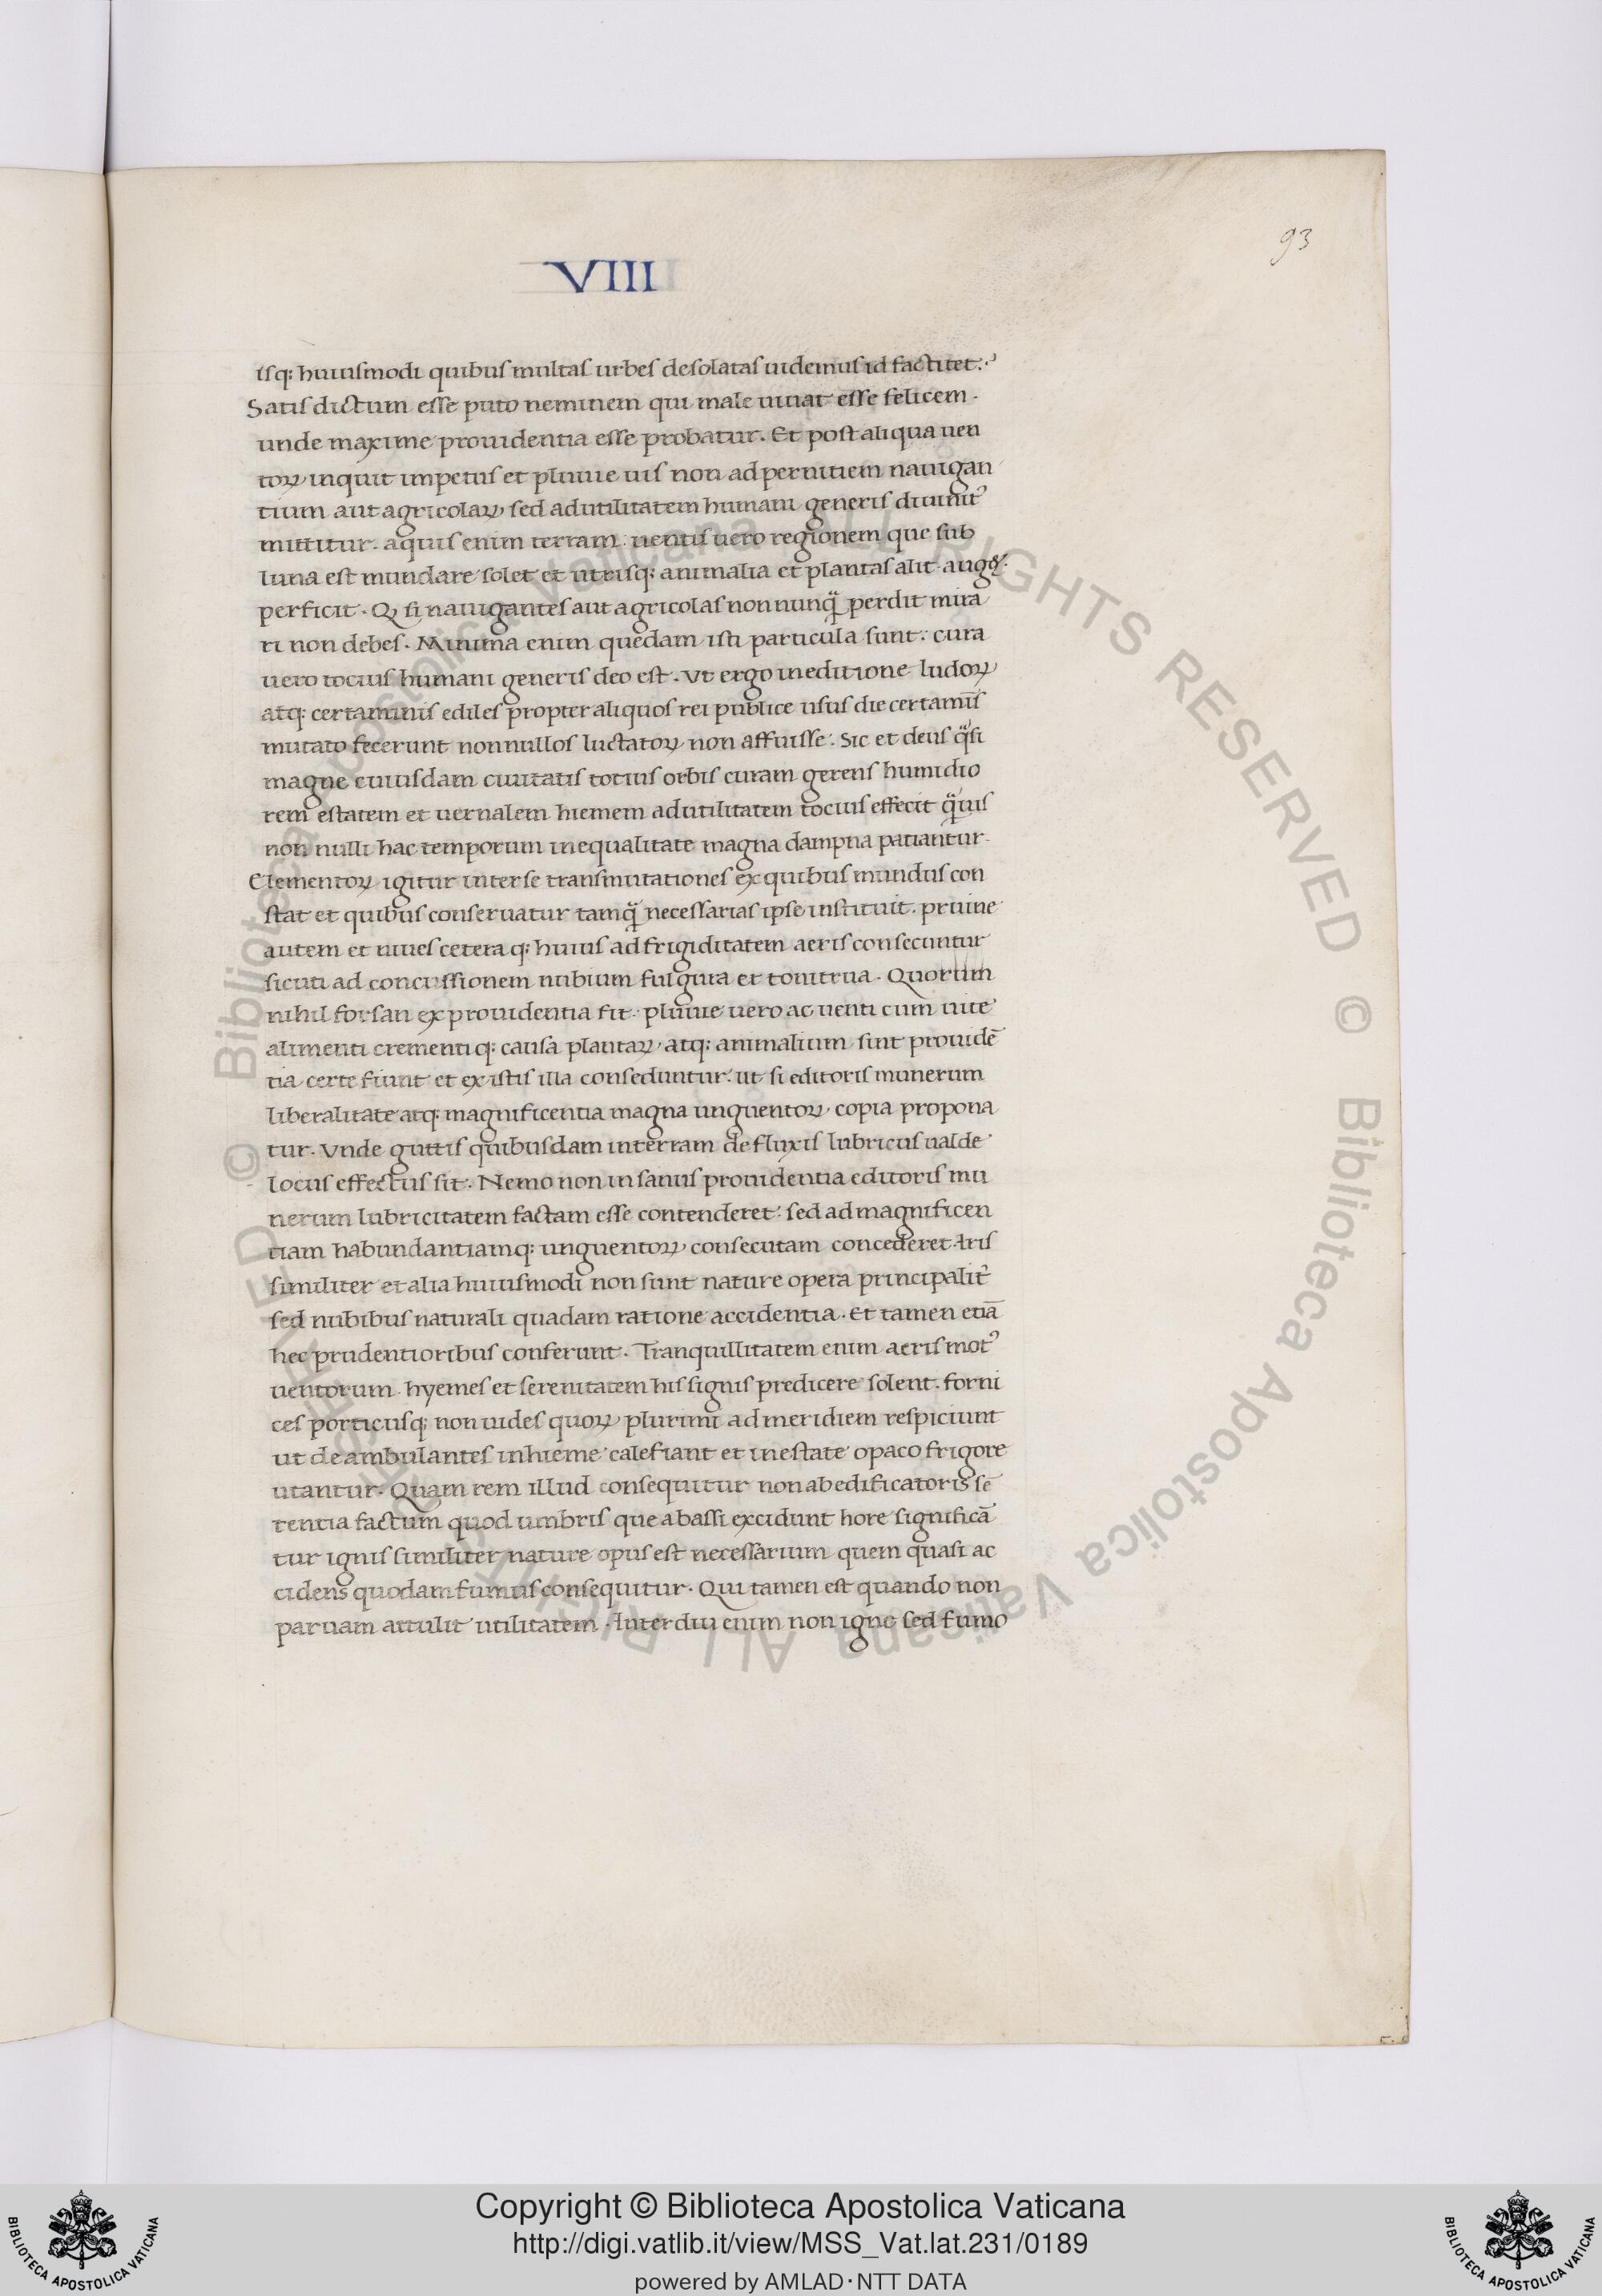 93
VIIII
isq: huiusmodi quibus multas urbes desolatas uidemus id factitet:·
Satis dictum esse puto neminem qui male uiuat esse felicem.
unde maxime prouidentia esse probatur. Et post aliqua uen
toꝝ inquit impetus et pluuie uis non ad pernitiem nauigan
tium aut agricolaꝝ sed ad utilitatem humani generis diuinit᾽
mittitur. aquis enim terram uentis uero regionem que sub
luna est mundare solet et utrisq: animalia et plantas alit. auget
perficit. Q si nauigantes aut agricolas non nunq̃ perdit mira
ri non debes. Minima enim quedam isti particula sunt: cura
uero tocius humani generis deo est. Vt ergo in editione ludoꝝ
atq: certaminis ediles propter aliquos rei publice usus die certamīs
mutato fecerunt nonnullos luctatoꝝ non affuisse. Sic et deus q̃si
magne cuiusdam ciuitatis totius orbis curam gerens humidio
rem estatem et uernalem hiemem ad utilitatem tocius effecit q̃uis
non nulli hac temporum inequalitate magna dampna patiantur.
Elementoꝝ igitur inter se transmutationes ex quibus mundus con
stat et quibus conseruatur tamq̃ necessarias ipse instituit. pruine
autem et niues cetera q: huius ad frigiditatem aeris consecuntur
sicuti ad concussionem nubium fulgura et tonitrua. Quorum
nihil forsan ex prouidentia fit. pluuie uero ac uenti cum uite
alimenti crementi q: causa plantaꝝ atq: animalium sint prouidē
tia certe fiunt et ex istis illa conseduntur. ut si editoris munerum
liberalitate atq: magnificentia magna unguentoꝝ copia propona
tur. Vnde guttis quibusdam in terram defluxis lubricus ualde
locus effectus sit. Nemo non insanus prouidentia editoris mu
nerum lubricitatem factam esse contenderet: sed ad magnificen
tiam habundantiamq: unguentoꝝ consecutam concederet. Iris
similiter et alia huiusmodi non sunt nature opera principalit᾽
sed nubibus naturali quadam ratione accidentia. Et tamen etiā
hec prudentioribus conferunt. Tranquillitatem enim aeris mot᾽
uentorum hyemes et serenitatem his signis predicere solent. forni
ces porticusq: non uides quoꝝ plurimi ad meridiem respiciunt
ut deambulantes in hieme calefiant et in estate opaco frigore
utantur. Quam rem illud consequitur non ab edificatoris sē
tentia factum quod umbris que abassi excidunt hore significā
tur ignis similiter nature opus est necessarium quem quasi ac
cidens quodam fumus consequitur. Qui tamen est quando non
paruam attulit utilitatem. Interdiu enim non igne sed fumo
© Biblioteca Apostolica Vaticana ALL RIGHTS RESERVED © Biblioteca Apostolica Vaticana ALL RIGHTS RESERVED
Copyright © Biblioteca Apostolica Vaticana
http://digi.vatlib.it/view/MSS_Vat.lat.231/0189
powered by AMLAD·NTT DATA
BIBLIOTECA APOSTOLICA VATICANA
BIBLIOTECA APOSTOLICA VATICANA